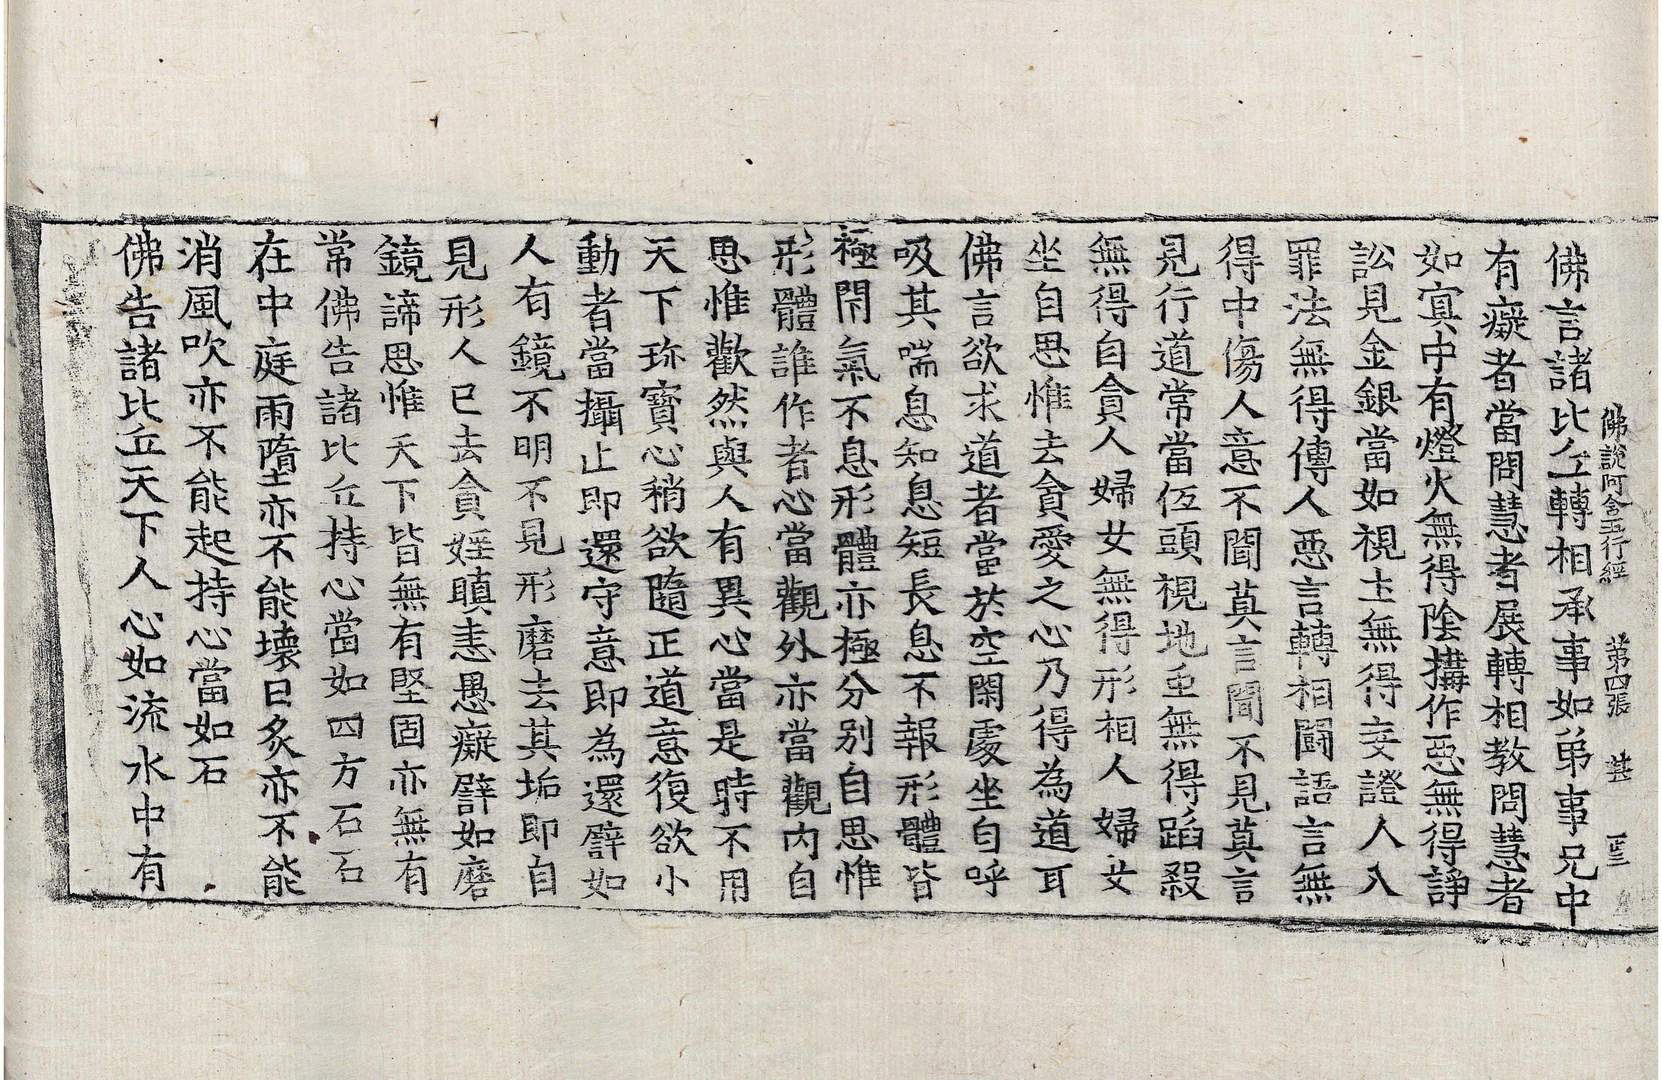 佛說阿含正行經 第四張
佛言諸比丘轉相承事如弟事兄中
有癡者當問慧者展轉相教問慧者
如冥中有燈火無得陰搆作惡無得諍
訟見金銀當如視土無得妄證人入
罪法無得傳人惡言轉相鬪語言無
得中傷人意不聞莫言聞不見莫言
見行道常當伍頭視地虫無得蹈殺
無得自貪人婦女無得形相人婦女
坐自思惟去貪愛之心乃得為道耳
佛言欲求道者當於空閑處坐自呼
吸其喘息知息短長息不報形體皆
極閇氣不息形體亦極分別自思惟
形體誰作者心當觀外亦當觀內自
思惟歡然與人有異心當是時不用
天下珎寶心稍欲隨正道意復欲小
動者當攝止即還守意即為還譬如
人有鏡不明不見形磨去其垢即自
見形人已去貪婬瞋恚愚癡譬如磨
鏡諦思惟天下皆無有堅固亦無有
常佛告諸比丘持心當如四方石石
在中庭雨墮亦不能壞日炙亦不能
消風吹亦不能起持心當如石
佛告諸比丘天下人心如流水中有